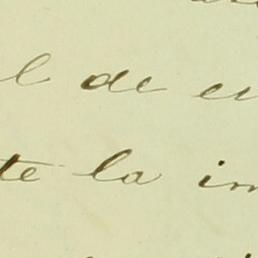 l de en
te la im